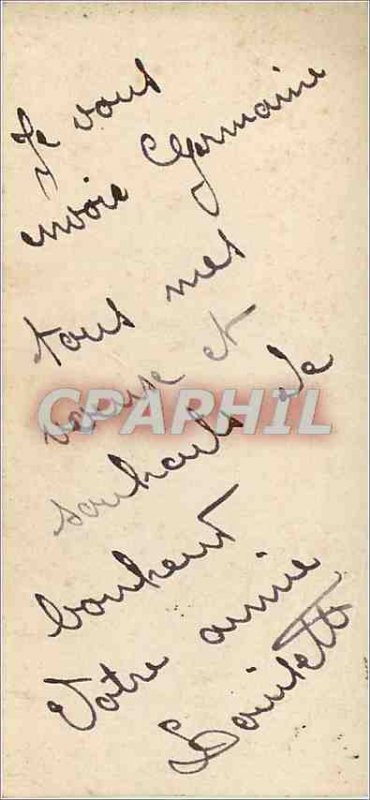 Je vous
envoie Germaine
tous mes
voeux et
souhaits de
CPAPHIL
bonheur
Votre amie
Louisette